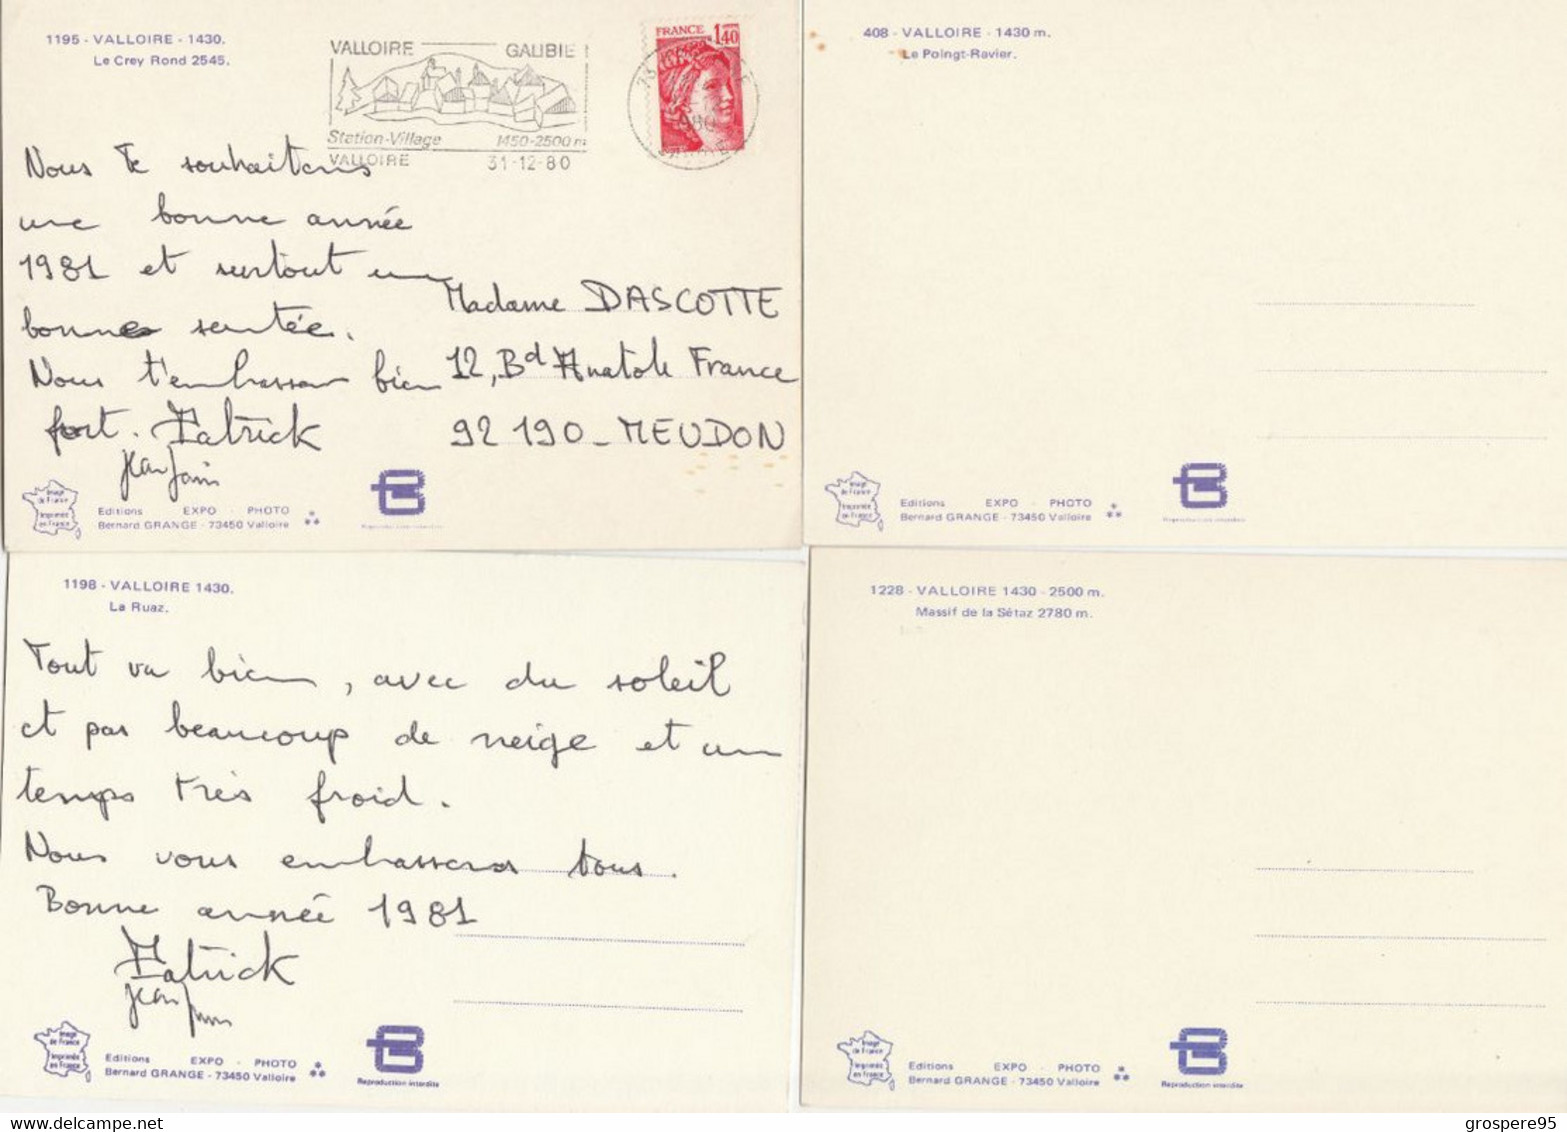 1195 - VALLOIRE - 1430.
Le Crey Rond 2545.
VALLOIRE GALIBIE
Station-Village 1450-2500 m
VALLOIRE 31-12-80
FRANCE 1,40
Nous Te souhaitons
une bonne année
1981 et surtout une
bonne santée.
Nous t'embrassons bien
fort. Patrick
Madame DASCOTTE
12, Bd Anatole France
92 190 - MEUDON
Image
de France
Imprimée
en France
Editions EXPO - PHOTO
Bernard GRANGE - 73450 Valloire
408 - VALLOIRE - 1430 m.
Le Poingt-Ravier.
Image
de France
Imprimée
en France
Editions EXPO - PHOTO
Bernard GRANGE - 73450 Valloire
1198 - VALLOIRE 1430.
La Ruaz.
Tout va bien, avec du soleil
et pas beaucoup de neige et un
temps très froid.
Nous vous embrassons tous.
Bonne année 1981
Patrick
Image
de France
Imprimée
en France
Editions EXPO - PHOTO
Bernard GRANGE - 73450 Valloire
Reproduction interdite
1228 - VALLOIRE 1430 - 2500 m.
Massif de la Sétaz 2780 m.
Image
de France
Imprimée
en France
Editions EXPO - PHOTO
Bernard GRANGE - 73450 Valloire
Reproduction interdite
grospere95